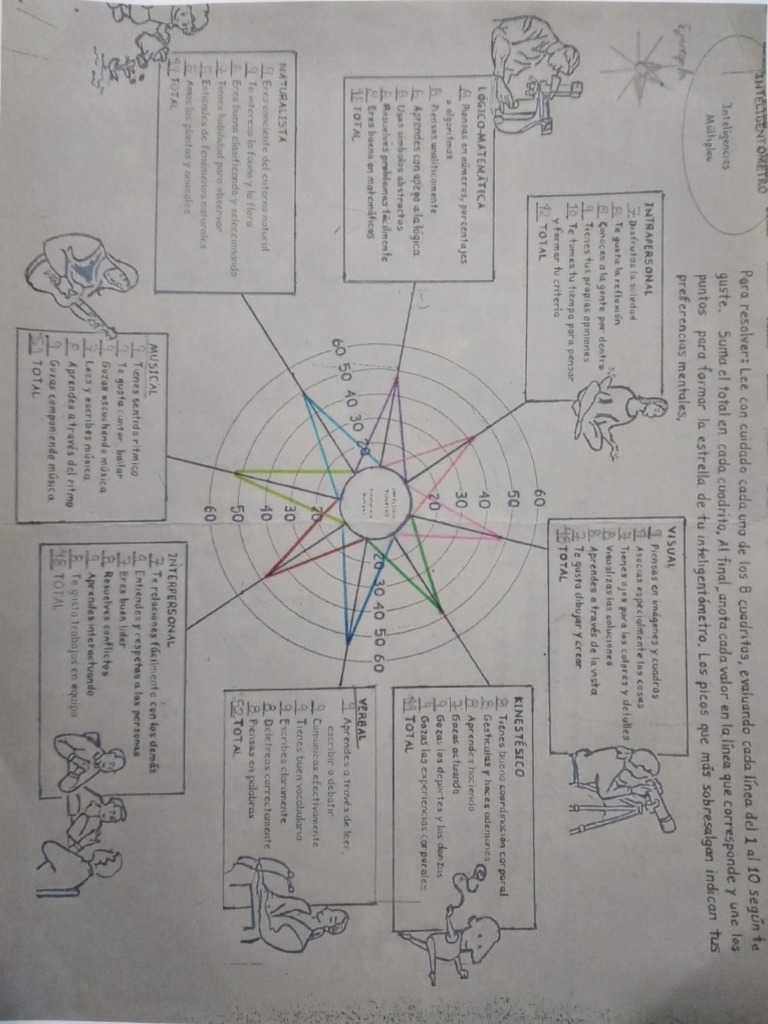 INTELIGENTÓMETRO
Inteligencias
Múltiples
Ejemplo
Para resolver: Lee con cuidado cada una de los 8 cuadritos, evaluando cada línea del 1 al 10 según te
guste. Suma el total en cada cuadrito. Al final, anota cada valor en la línea que corresponde y une los
puntos para formar la estrella de tu inteligentómetro. Los picos que más sobresalgan indican tus
preferencias mentales.
INTRAPERSONAL
7 Disfrutas la soledad
8 Te gusta la reflexión
8 Conoces a la gente por dentro
9 Tienes tus propias opiniones
10 Te tomes tu tiempo para pensar
y formar tu criterio
42 TOTAL
VISUAL
9 Piensas en imágenes y cuadros
9 Asocias especialmente las cosas
7 Tienes ojos para los colores y detalles
8 Visualizas las soluciones
8 Aprendes a través de la vista
7 Te gusta dibujar y crear
TOTAL
LÓGICO-MATEMÁTICA
8 Piensas en números, porcentajes
o algoritmos
8 Piensas analíticamente
8 Aprendes con apego a la lógica
8 Usas símbolos abstractos
8 Resuelves problemas fácilmente
8 Eres bueno en matemáticas
TOTAL
KINESTÉSICO
8 Tienes buena coordinación corporal
8 Gesticulas y haces ademanes
8 Aprendes haciendo
7 Gozas actuando
9 Gozas los deportes y las danzas
9 Gozas las experiencias corporales
TOTAL
NATURALISTA
9 Eres conciente del entorno natural
9 Te interesa la fauna y la flora
Eres bueno clasificando y seleccionando
Tienes habilidad para observar
Entiendes de fenómenos naturales
Amas las plantas y animales
TOTAL
VERBAL
9 Aprendes a través de leer,
escribir o debatir
9 Comunicas efectivamente
9 Tienes buen vocabulario
9 Escribes claramente
8 Deletreas correctamente
8 Piensas en palabras
52 TOTAL
MUSICAL
9 Tienes sentido rítmico
9 Te gusta cantar bailar
9 Gozas escuchando música
Lees y escribes música
8 Aprendes a través del ritmo
9 Gozas componiendo música
TOTAL
INTERPERSONAL
7 Te relacionas fácilmente con los demás
9 Entiendes y respetas a las personas
7 Eres buen líder
8 Resuelves conflictos
9 Aprendes interactuando
8 Te gusta trabajar en equipo
48 TOTAL
60 50 40 30 20
20 30 40 50 60
60 50 40 30 20
20 30 40 50 60